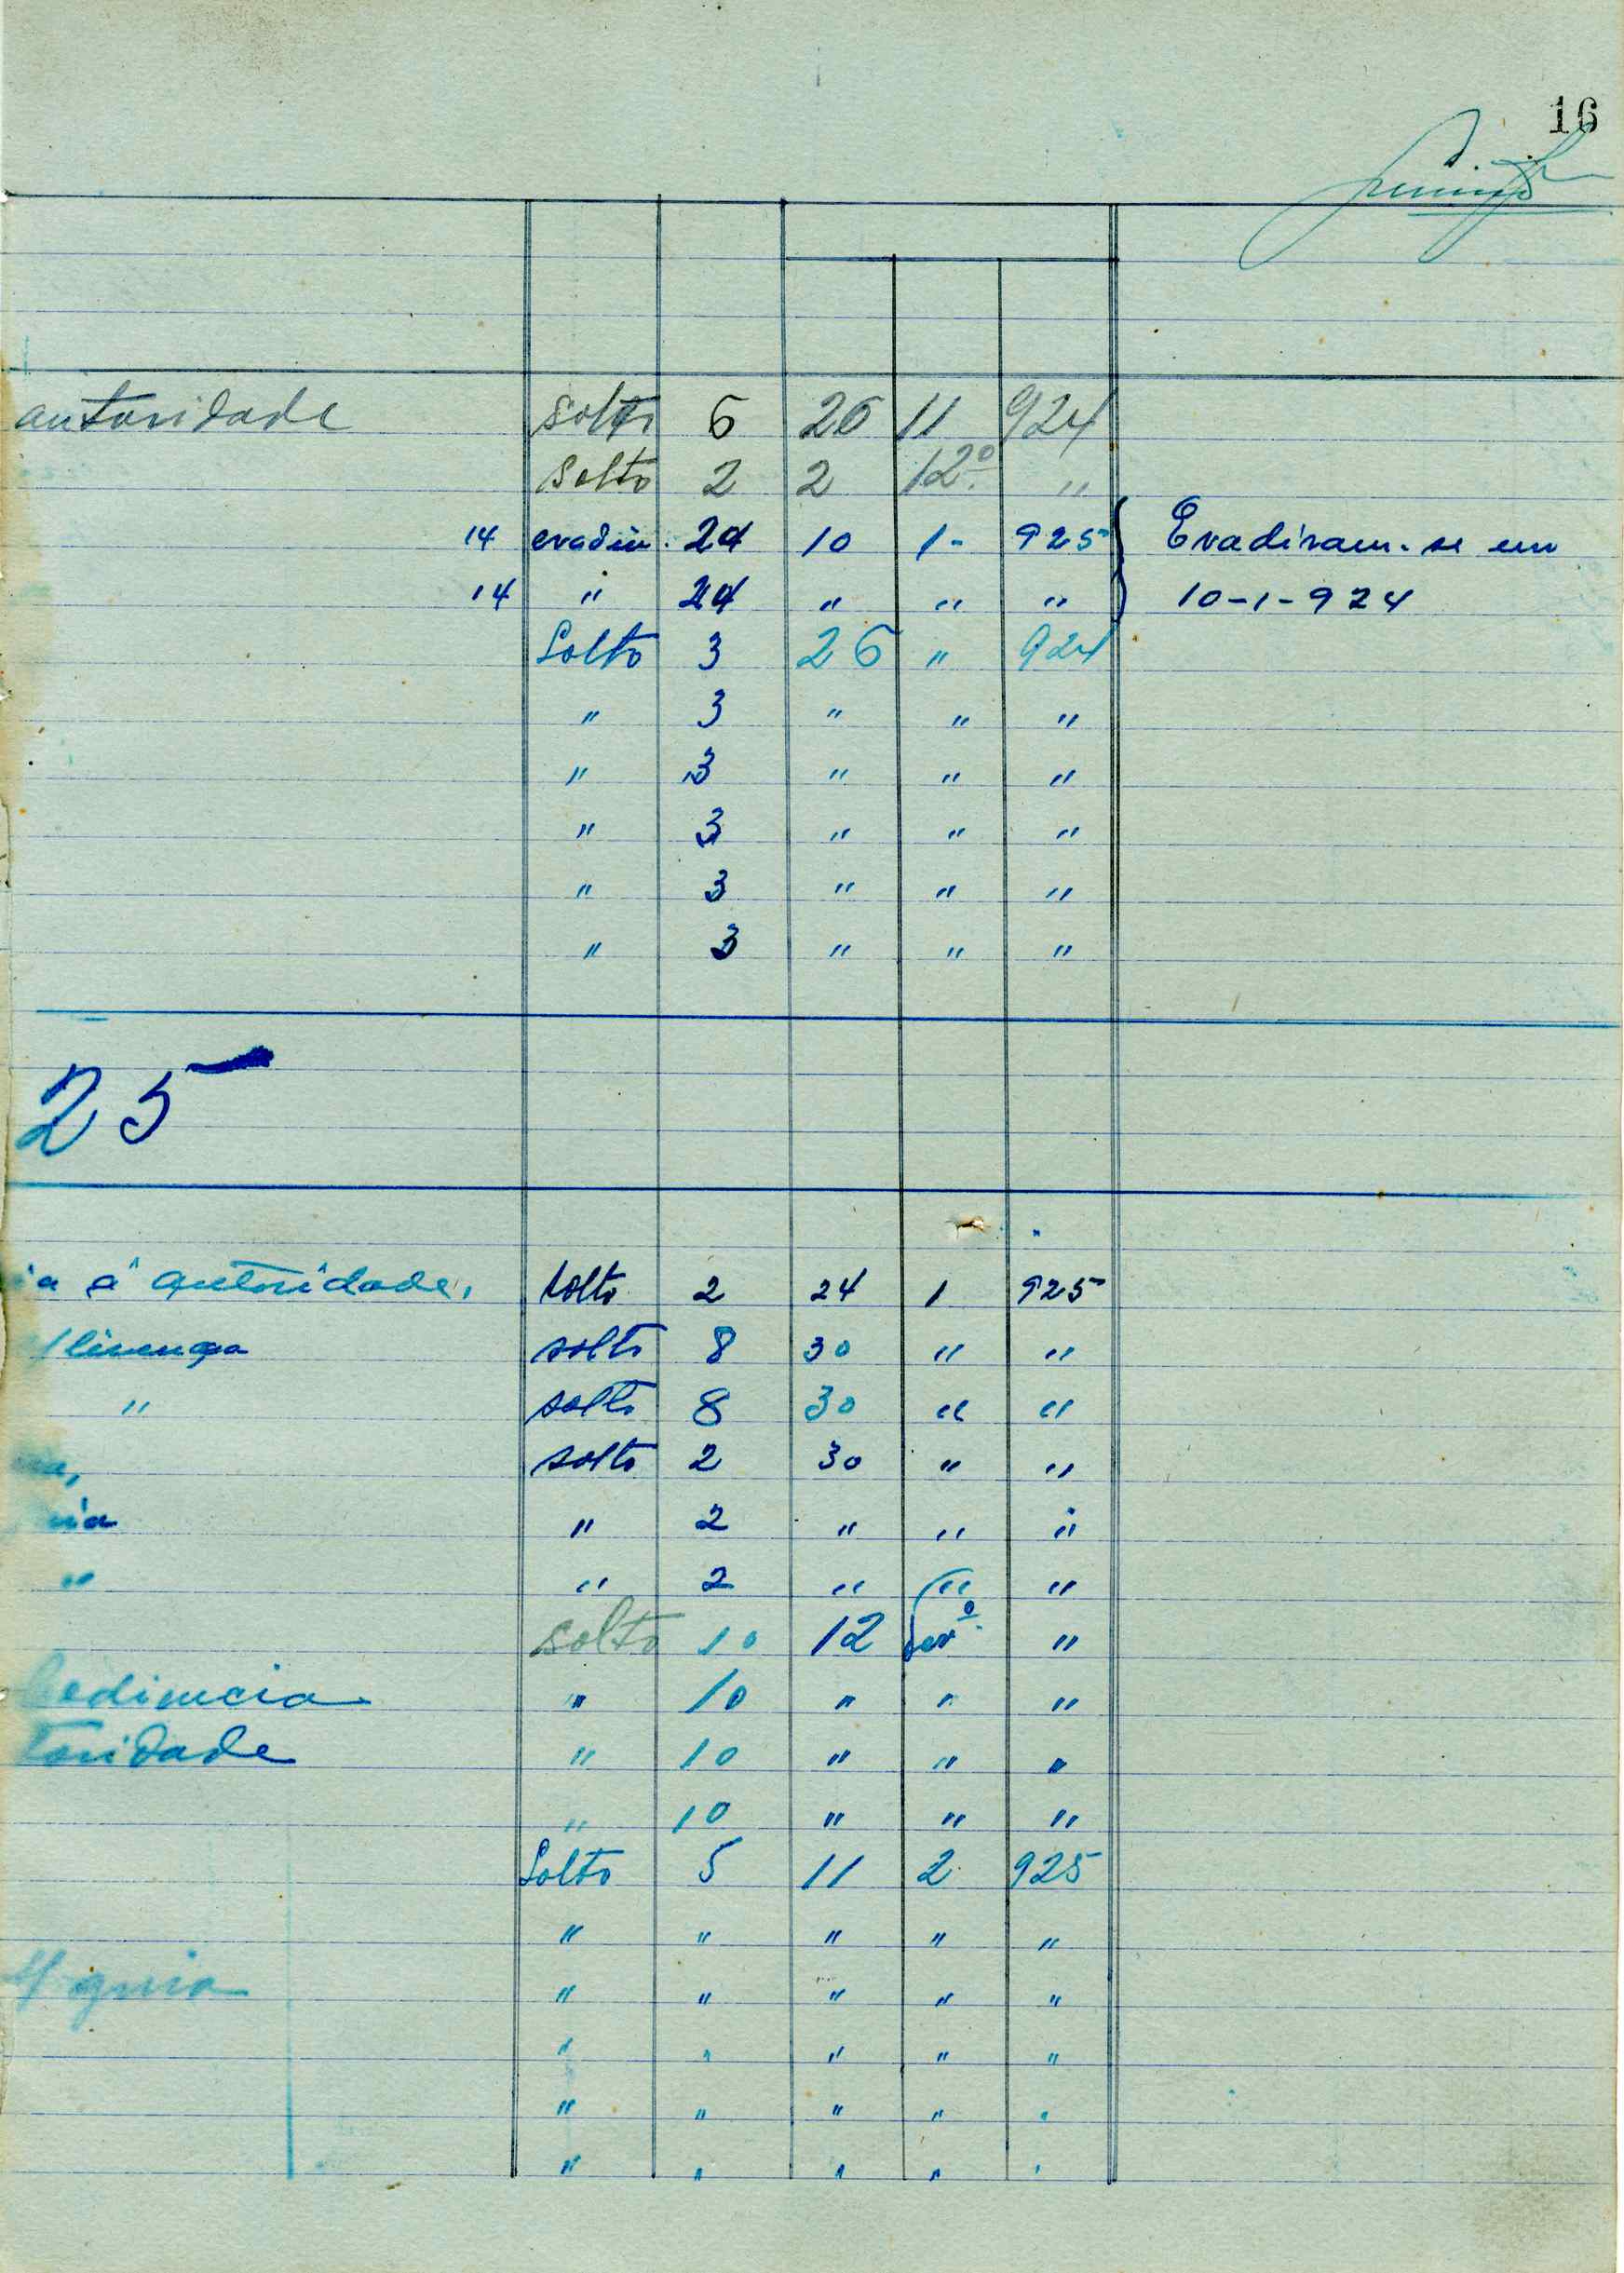 16
autoridade solto 6 26 11 924
Solto 2 2 12º "
14 evadiu. 24 10 1- 925 Evadiram-se em
14 " 24 " " " 10-1-924
Solto 3 26 " 924
" 3 " " "
" 3 " " "
" 3 " " "
" 3 " " "
" 3 " " "
25
ia á autoridade, solto 2 24 1 925
licença solto 8 30 " "
" solto 8 30 " "
solto 2 30 " "
" 2 " " "
" " 2 " " "
solto 10 12 Fevº "
bediencia " 10 " " "
toridade " 10 " " "
" 10 " " "
Solto 5 11 2 925
" " " " "
guia " " " " "
" " " " "
" " " " "
" " " " "